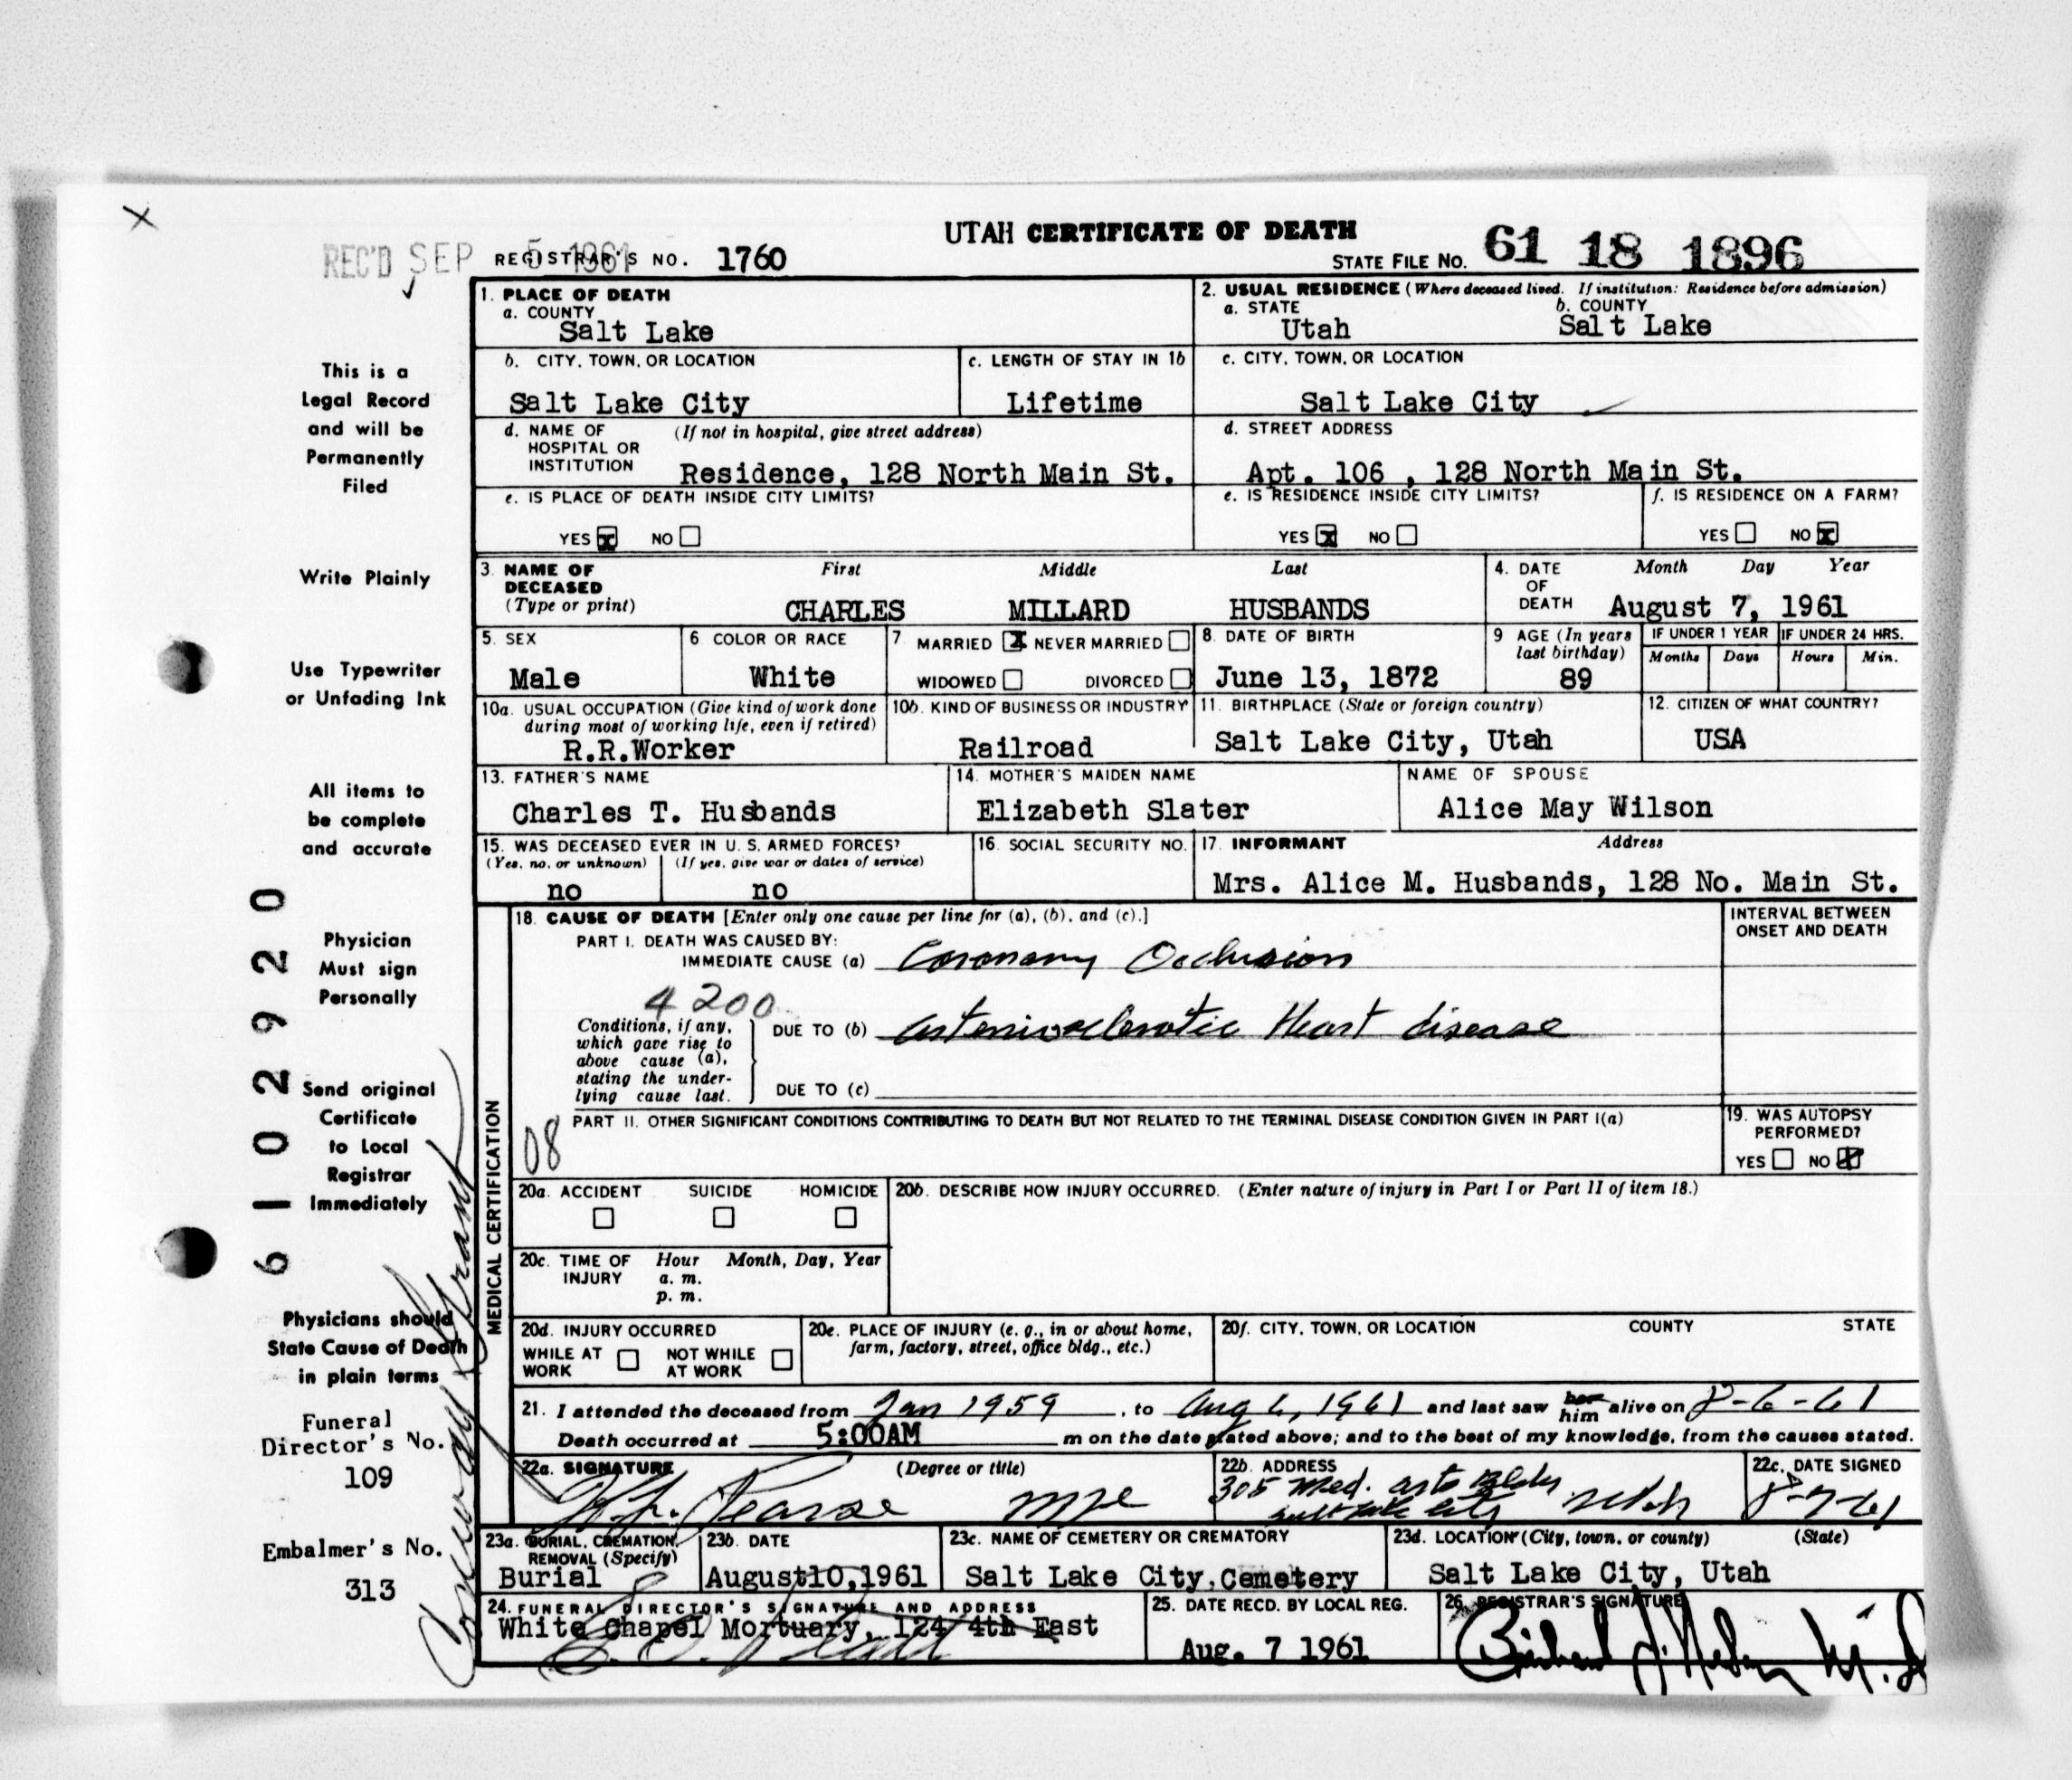 UTAH CERTIFICATE OF DEATH
REC'D SEP 5 1961 REGISTRAR'S NO. 1760 STATE FILE NO. 61 18 1896
1. PLACE OF DEATH
a. COUNTY
Salt Lake
2. USUAL RESIDENCE (Where deceased lived. If institution: Residence before admission)
a. STATE b. COUNTY
Utah Salt Lake
b. CITY, TOWN, OR LOCATION
Salt Lake City
c. LENGTH OF STAY IN 1b
Lifetime
c. CITY, TOWN, OR LOCATION
Salt Lake City
d. NAME OF (If not in hospital, give street address)
HOSPITAL OR
INSTITUTION Residence, 128 North Main St.
d. STREET ADDRESS
Apt. 106 , 128 North Main St.
e. IS PLACE OF DEATH INSIDE CITY LIMITS?
YES x NO
e. IS RESIDENCE INSIDE CITY LIMITS?
YES x NO
f. IS RESIDENCE ON A FARM?
YES NO x
3. NAME OF First Middle Last
DECEASED
(Type or print) CHARLES MILLARD HUSBANDS
4. DATE Month Day Year
OF
DEATH August 7, 1961
5. SEX
Male
6. COLOR OR RACE
White
7. MARRIED x NEVER MARRIED
WIDOWED DIVORCED
8. DATE OF BIRTH
June 13, 1872
9 AGE (In years
last birthday)
89
IF UNDER 1 YEAR IF UNDER 24 HRS.
Months Days Hours Min.
10a. USUAL OCCUPATION (Give kind of work done
during most of working life, even if retired)
R.R.Worker
10b. KIND OF BUSINESS OR INDUSTRY
Railroad
11. BIRTHPLACE (State or foreign country)
Salt Lake City, Utah
12. CITIZEN OF WHAT COUNTRY?
USA
13. FATHER'S NAME
Charles T. Husbands
14. MOTHER'S MAIDEN NAME
Elizabeth Slater
NAME OF SPOUSE
Alice May Wilson
15. WAS DECEASED EVER IN U. S. ARMED FORCES?
(Yes, no, or unknown) (If yes, give war or dates of service)
no no
16. SOCIAL SECURITY NO.
17. INFORMANT Address
Mrs. Alice M. Husbands, 128 No. Main St.
MEDICAL CERTIFICATION
18. CAUSE OF DEATH [Enter only one cause per line for (a), (b), and (c).]
INTERVAL BETWEEN
ONSET AND DEATH
PART I. DEATH WAS CAUSED BY:
IMMEDIATE CAUSE (a) Coronary Occlusion
4200
Conditions, if any,
which gave rise to
above cause (a),
stating the under-
lying cause last.
DUE TO (b) Arteriosclerotic Heart disease
DUE TO (c)
PART II. OTHER SIGNIFICANT CONDITIONS CONTRIBUTING TO DEATH BUT NOT RELATED TO THE TERMINAL DISEASE CONDITION GIVEN IN PART I(a)
08
19. WAS AUTOPSY
PERFORMED?
YES NO x
20a. ACCIDENT SUICIDE HOMICIDE
20b. DESCRIBE HOW INJURY OCCURRED. (Enter nature of injury in Part I or Part II of item 18.)
20c. TIME OF Hour Month, Day, Year
INJURY a. m.
p. m.
20d. INJURY OCCURRED
WHILE AT NOT WHILE
WORK AT WORK
20e. PLACE OF INJURY (e. g., in or about home,
farm, factory, street, office bldg., etc.)
20f. CITY, TOWN, OR LOCATION COUNTY STATE
21. I attended the deceased from Jan 1959, to Aug 6, 1961 and last saw her him alive on 8-6-61
Death occurred at 5:00AM m on the date stated above; and to the best of my knowledge, from the causes stated.
22a. SIGNATURE (Degree or title)
Pearse
22b. ADDRESS
305 Med. arts Bldg
Salt Lake City Utah
22c. DATE SIGNED
8-7-61
23a. BURIAL, CREMATION,
REMOVAL (Specify)
Burial
23b. DATE
August10,1961
23c. NAME OF CEMETERY OR CREMATORY
Salt Lake City Cemetery
23d. LOCATION (City, town, or county) (State)
Salt Lake City, Utah
24. FUNERAL DIRECTOR'S SIGNATURE AND ADDRESS
White Chapel Mortuary, 124 4th East
25. DATE RECD. BY LOCAL REG.
Aug. 7 1961
26. REGISTRAR'S SIGNATURE
This is a
Legal Record
and will be
Permanently
Filed
Write Plainly
Use Typewriter
or Unfading Ink
All items to
be complete
and accurate
Physician
Must sign
Personally
Send original
Certificate
to Local
Registrar
Immediately
Physicians should
State Cause of Death
in plain terms
Funeral
Director's No.
109
Embalmer's No.
313
61 02920